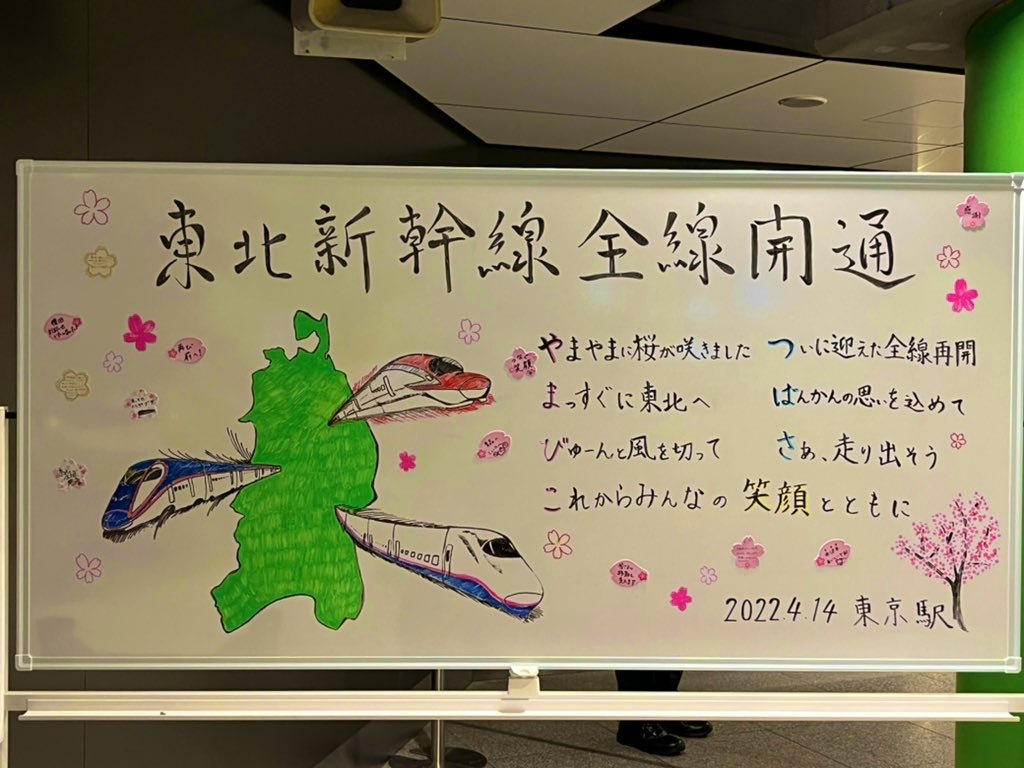 東北新幹線全線開通
やまやまに桜が咲きました
まっすぐに東北へ
びゅーんと風を切って
これからみんなの笑顔とともに
ついに迎えた全線再開
ばんかんの思いを込めて
さぁ、走り出そう
2022.4.14 東京駅
感謝!
再び
前へ!
笑顔